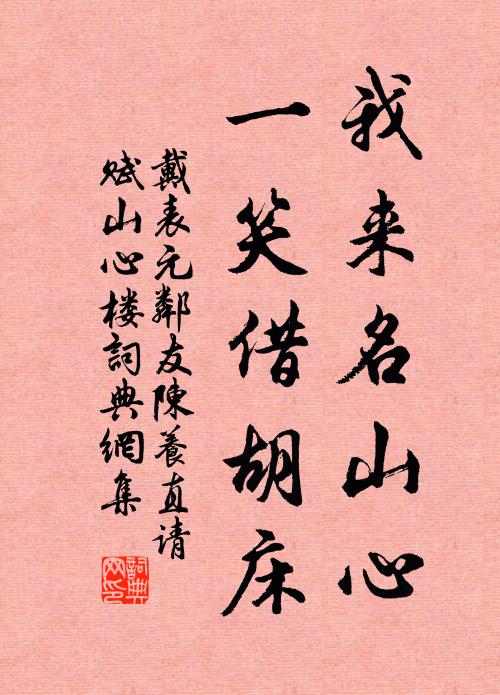 我来名山心
一笑借胡床
戴表元鄰友陳養直请
赋山心楼詞典網集
詞典网印